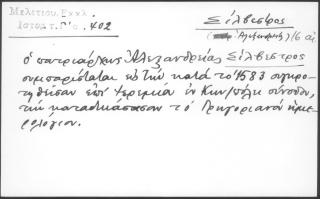 Μελετίου. Εκκλ.
Ιστορ τ. Γ΄ σ. 402
Σίλβεστρος
Ἀλεξανδρείας) 16 αἰ
ὁ πατριάρχης Ἀλεξανδρείας Σίλβεστρος
συμπαρίσταται εἰς τὴν κατὰ τὸ 1583 συγκρο-
τηθεῖσαν ἐπὶ Ἱερεμία ἐν Κων/πόλει σύνοδον,
τὴν καταδικάσασαν τὸ Γρηγοριανὸ ἡμε-
ρολόγιον.